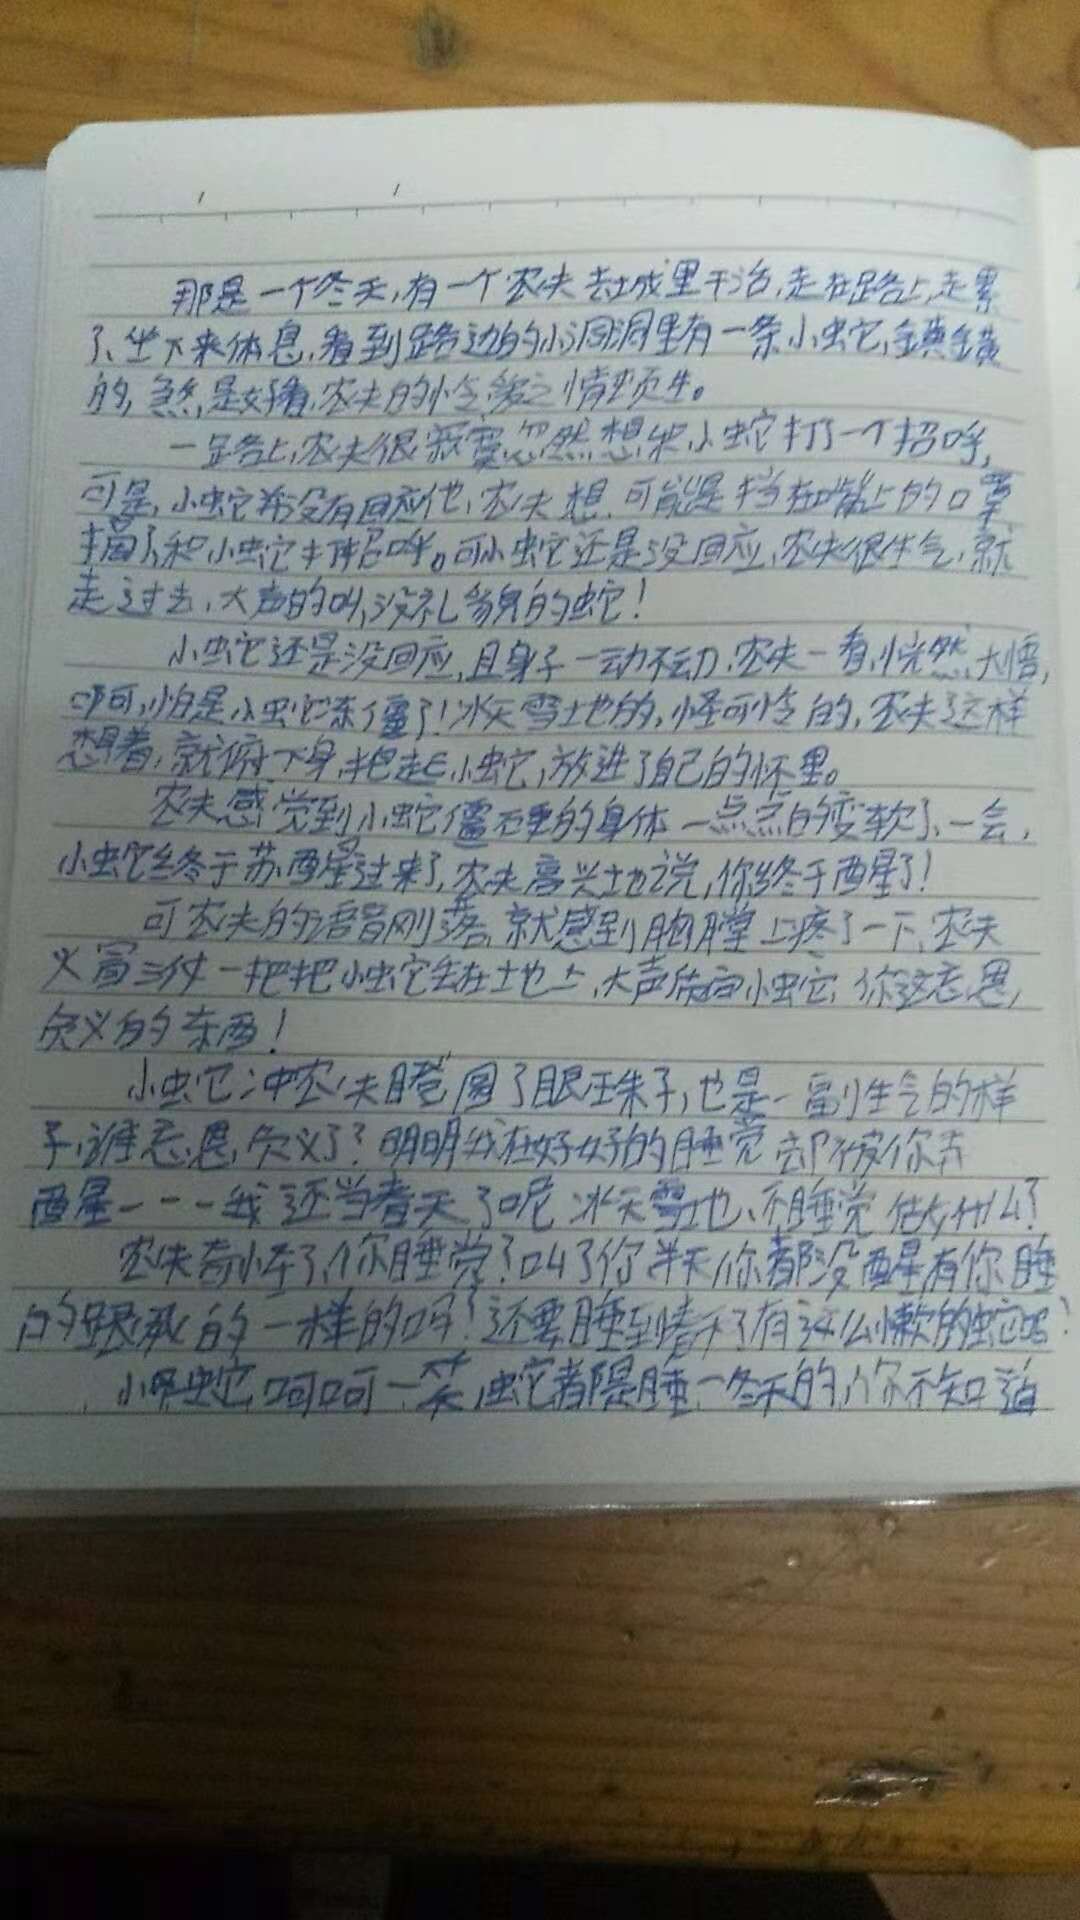 那是一个冬天,有一个农夫去城里干活,走在路上,走累
了、坐下来休息,看到路边的小洞洞里有一条小蛇,金黄金黄
的,煞是好看,农夫的怜爱之情顿生。
一路上,农夫很寂寞,忽然想和小蛇打了一个招呼,
可是,小蛇并没有回应他,农夫想,可能是挡在嘴上的口罩
摘了和小蛇打招呼。可小蛇还是没回应,农夫很生气,就
走过去,大声的叫,没礼貌的蛇!
小蛇还是没回应,且身子一动不动,农夫一看,恍然大悟,
呵呵,怕是小蛇冻僵了!冰天雪地的,怪可怜的,农夫这样
想着,就俯下身,把起小蛇,放进了自己的怀里。
农夫感觉到小蛇僵硬的身体一点点的变软了、一会,
小蛇终于苏醒过来了,农夫高兴地说,你终于醒了!
可农夫的语音刚落,就感到胸膛上疼了一下,农夫
火冒三丈一把把小蛇丢在土地上,大声质问小蛇,你这忘恩,
负义的东西!
小蛇冲农夫瞪圆了眼珠子,也是一副生气的样
子,谁忘恩负义了?明明我在好好的睡觉 却被你弄
醒---我还当春天了呢 冰天雪地、不睡觉 做什么?
农夫奇怪了,你睡觉?叫了你半天你都没醒,有你睡
的跟死的一样的吗!还要睡到春天了有这么懒的蛇吗?
小蛇呵呵一笑,蛇都是睡一冬天的,你不知道